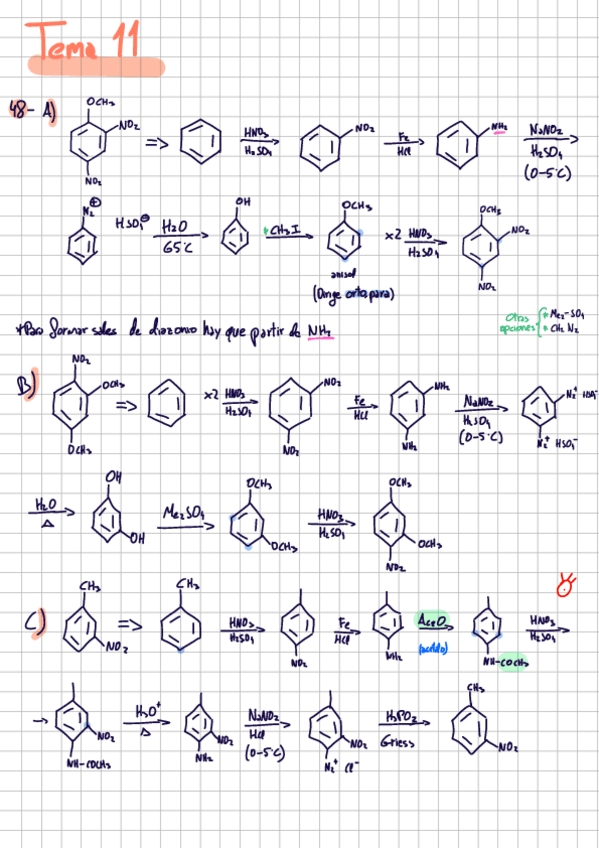 Tema 11
48- A) OCH₃ NO₂ NO₂ => HNO₃ H₂SO₄ NO₂ Fe HCl NH₂ NaNO₂ H₂SO₄ (0-5ºC)
N₂ ⊕ HSO₄⊖ H₂O 65ºC OH + CH₃I OCH₃ anisol (Dirige orto, para) x2 HNO₃ H₂SO₄ OCH₃ NO₂ NO₂
*Para formar sales de diazonio hay que partir de NH₂
Otras opciones * Me₂-SO₄ * CH₂N₂
B) NO₂ OCH₃ OCH₃ => x2 HNO₃ H₂SO₄ NO₂ NO₂ Fe HCl NH₂ NH₂ NaNO₂ H₂SO₄ (0-5ºC) N₂⁺ HSO₄⁻ N₂⁺ HSO₄⁻
H₂O Δ OH OH Me₂SO₄ OCH₃ OCH₃ HNO₃ H₂SO₄ OCH₃ OCH₃ NO₂
C) CH₃ NO₂ => CH₃ HNO₃ H₂SO₄ NO₂ Fe HCl NH₂ NH-COCH₃ HNO₃ H₂SO₄
NO₂ NH-COCH₃ H₃O⁺ Δ NO₂ NH₂ NaNO₂ HCl (0-5ºC) NO₂ N₂⁺ Cl⁻ H₃PO₂ Griess CH₃ NO₂